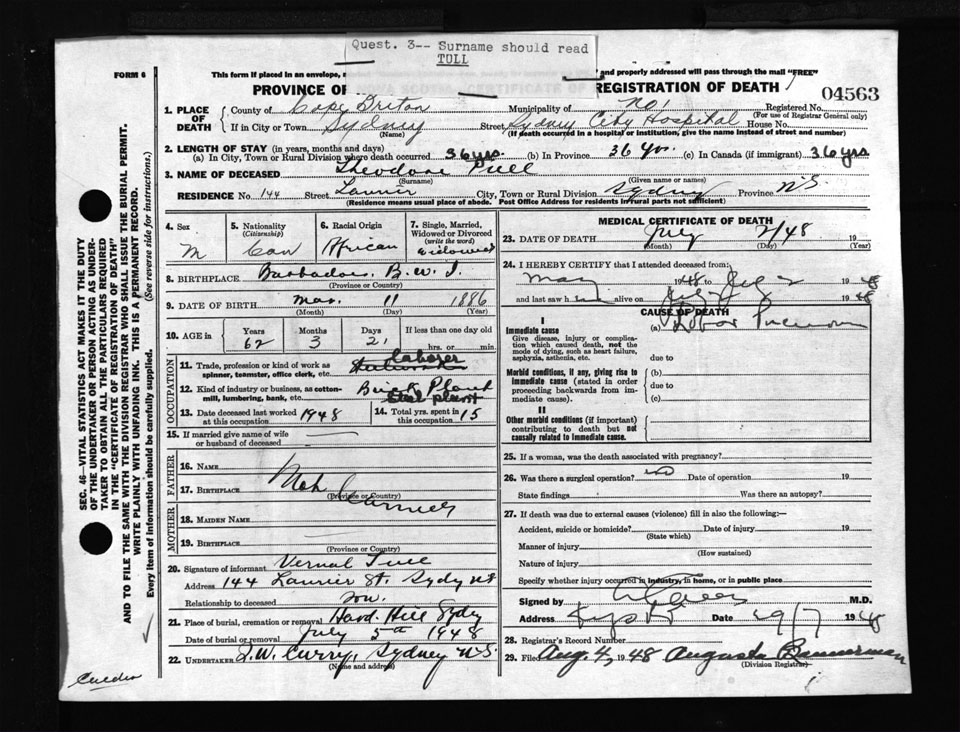 Quest. 3-- Surname should read
TOLL
FORM 6
This form if placed in an envelope, and properly addressed will pass through the mail "FREE"
PROVINCE OF REGISTRATION OF DEATH
04563
1. PLACE OF DEATH County of Cape Breton Municipality of No 1 Registered No.
(For use of Registrar General only)
If in City or Town Sydney Street Sydney City Hospital House No.
(Name) (If death occurred in a hospital or institution, give the name instead of street and number)
2. LENGTH OF STAY (in years, months and days)
(a) In City, Town or Rural Division where death occurred 36 yrs. (b) In Province 36 yrs. (c) In Canada (if immigrant) 36 yrs
3. NAME OF DECEASED Theodore
(Surname) (Given name or names)
RESIDENCE No. 144 Street Laurier City, Town or Rural Division Sydney Province N.S.
(Residence means usual place of abode. Post Office Address for residents in rural parts not sufficient)
4. Sex M
5. Nationality (Citizenship) Can
6. Racial Origin African
7. Single, Married, Widowed or Divorced (write the word) Widowed
8. BIRTHPLACE Barbados, B.W.I.
(Province or Country)
9. DATE OF BIRTH Mar. 11 1886
(Month) (Day) (Year)
10. AGE in Years Months Days If less than one day old
62 3 21 hrs. or min.
OCCUPATION
11. Trade, profession or kind of work as spinner, teamster, office clerk, etc. laborer
12. Kind of industry or business, as cotton-mill, lumbering, bank, etc. Brick Plant Steel plant
13. Date deceased last worked at this occupation 1948
14. Total yrs. spent in this occupation 15
15. If married give name of wife or husband of deceased
FATHER
16. Name
17. Birthplace Not
(Province or Country)
MOTHER
18. Maiden Name
19. Birthplace
(Province or Country)
20. Signature of informant Vernal
Address 144 Laurier St. Sydney NS
Relationship to deceased son.
21. Place of burial, cremation or removal Hard. Hill Sydy
Date of burial or removal July 5th 1948
22. Undertaker J.W. Curry, Sydney N.S.
(Name and address)
MEDICAL CERTIFICATE OF DEATH
23. DATE OF DEATH July 2/48 19
(Month) (Day) (Year)
24. I HEREBY CERTIFY that I attended deceased from:
May 1948 to July 2 1948
and last saw h alive on July 2 1948
CAUSE OF DEATH
I
Immediate cause (a) Lobar Pneumonia
Give disease, injury or complication which caused death, not the mode of dying, such as heart failure, asphyxia, asthenia, etc. due to
Morbid conditions, if any, giving rise to immediate cause (stated in order proceeding backwards from immediate cause). (b)
due to
(c)
II
Other morbid conditions (if important) contributing to death but not causally related to immediate cause.
25. If a woman, was the death associated with pregnancy?
26. Was there a surgical operation? no Date of operation 19
State findings Was there an autopsy?
27. If death was due to external causes (violence) fill in also the following:-
Accident, suicide or homicide? Date of injury 19
(State which)
Manner of injury
(How sustained)
Nature of injury
Specify whether injury occurred in industry, in home, or in public place
Signed by M.D.
Address Date 19/7 1948
28. Registrar's Record Number
29. Filed Aug. 4, 1948 Augusta Bannerman
(Division Registrar)
SEC. 46—VITAL STATISTICS ACT MAKES IT THE DUTY
OF THE UNDERTAKER OR PERSON ACTING AS UNDER-
TAKER TO OBTAIN ALL THE PARTICULARS REQUIRED
IN THE "CERTIFICATE OF REGISTRATION OF DEATH"
AND TO FILE THE SAME WITH THE DIVISION REGISTRAR WHO SHALL ISSUE THE BURIAL PERMIT.
WRITE PLAINLY WITH UNFADING INK. THIS IS A PERMANENT RECORD.
Every item of information should be carefully supplied. (See reverse side for instructions.)